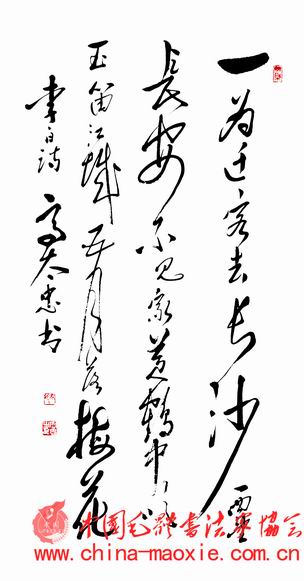 一为迁客去长沙西望
長安不见家黄鹤中吹
玉笛江城五月落梅花
李白诗 高太忠书
中國毛體書法家協會
www.china-maoxie.com.cn